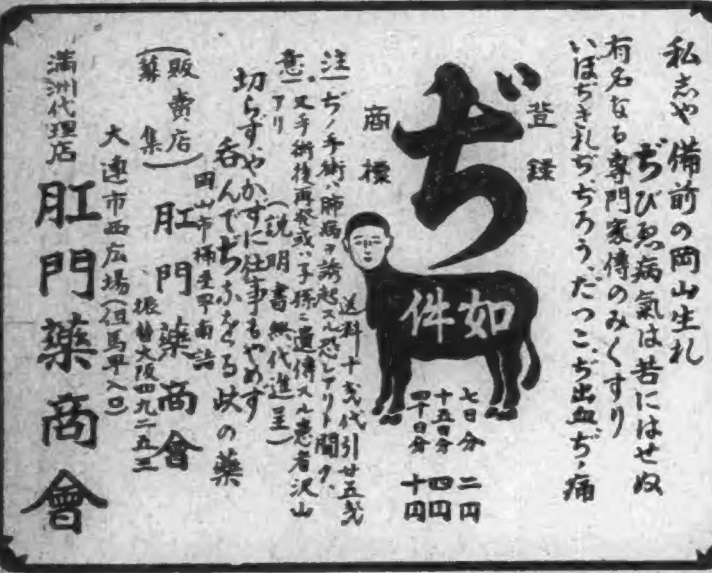 私志や備前の岡山生れ
ぢびゑ病氣は苦にはせぬ
有名なる専門家傳のみくすり
いぼぢきれぢ、ぢろう、だつこ、ぢ出血、ぢノ痛
登録
商標
ぢ
如件
七日分 二円
十五日分 四円
四十日分 十円
送料十戋代引廿五戋
注意
ぢノ手術ハ肺病ヲ誘起スル恐レアリト聞ク、
又手術後再発或ハ子孫ニ遺傳スル患者沢山
アリ (説明書無代進呈)
切らずやかずに仕事もやめず
呑んでぢが
る
の薬
(販賣店募集)
岡山市
肛門藥商會
振替大阪四九二五三
大連市西広場(但馬町入口)
満洲代理店 肛門藥商會